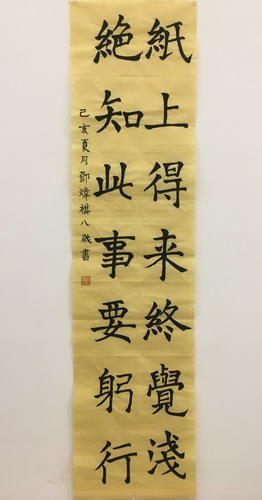 紙上得来終覺淺
絶知此事要躬行
己亥夏月鄧煒棋八歲書